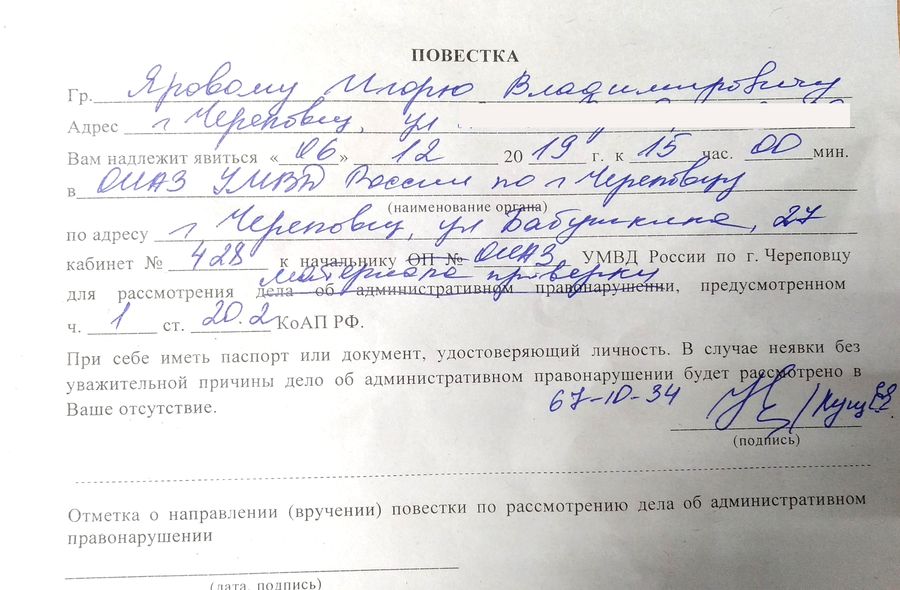 ПОВЕСТКА
Гр. Яровому Игорю Владимировичу
Адрес г Череповец, ул
Вам надлежит явиться «06» 12 2019 г. к 15 час. 00 мин.
в ОИАЗ УМВД России по г Череповцу
(наименование органа)
по адресу г Череповец, ул Бабушкина, 27
кабинет № 428 к начальнику ОП № ОИАЗ УМВД России по г. Череповцу
материала проверки
для рассмотрения дела об административном правонарушении, предусмотренном
ч. 1 ст. 20.2 КоАП РФ.
При себе иметь паспорт или документ, удостоверяющий личность. В случае неявки без
уважительной причины дело об административном правонарушении будет рассмотрено в
Ваше отсутствие.
67-10-34
(подпись)
Отметка о направлении (вручении) повестки по рассмотрению дела об административном
правонарушении
(дата, подпись)